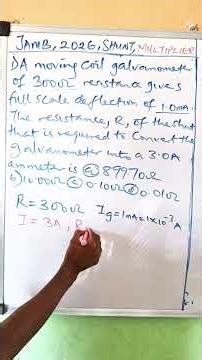 JAMB, 2026, SHUNT, MULTIPLIER
1) A moving coil galvanometer
of 300Ω resistance gives
full scale deflection of 1.0mA.
The resistance, R, of the shunt
that is required to convert the
galvanometer into a 3.0A
ammeter is (a) 89970Ω
b) 10.00Ω c) 0.10Ω d) 0.01Ω
R = 300Ω Ig = 1mA = 1×10⁻³A
I = 3A, R